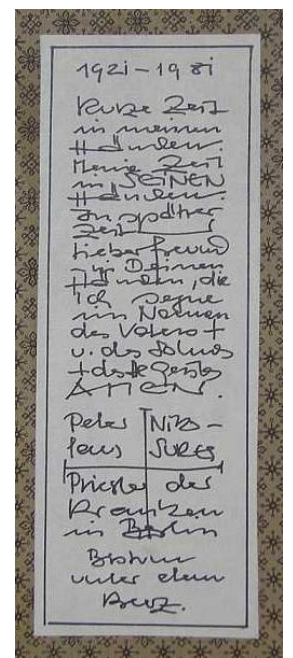 1921 – 1981
Kurze Zeit
in meinen
Händen.
Meine Zeit
in SEINEN
Händen.
In später
Zeit
lieber Freund
in Deinen
Händen, die
ich segne
im Namen
des Vaters +
u. des Sohnes
+ des Hl Geistes
AMEN.
Peter Niko-
laus
Priester der
Kranken
in Berlin
Bistum
unter dem
Kreuz.